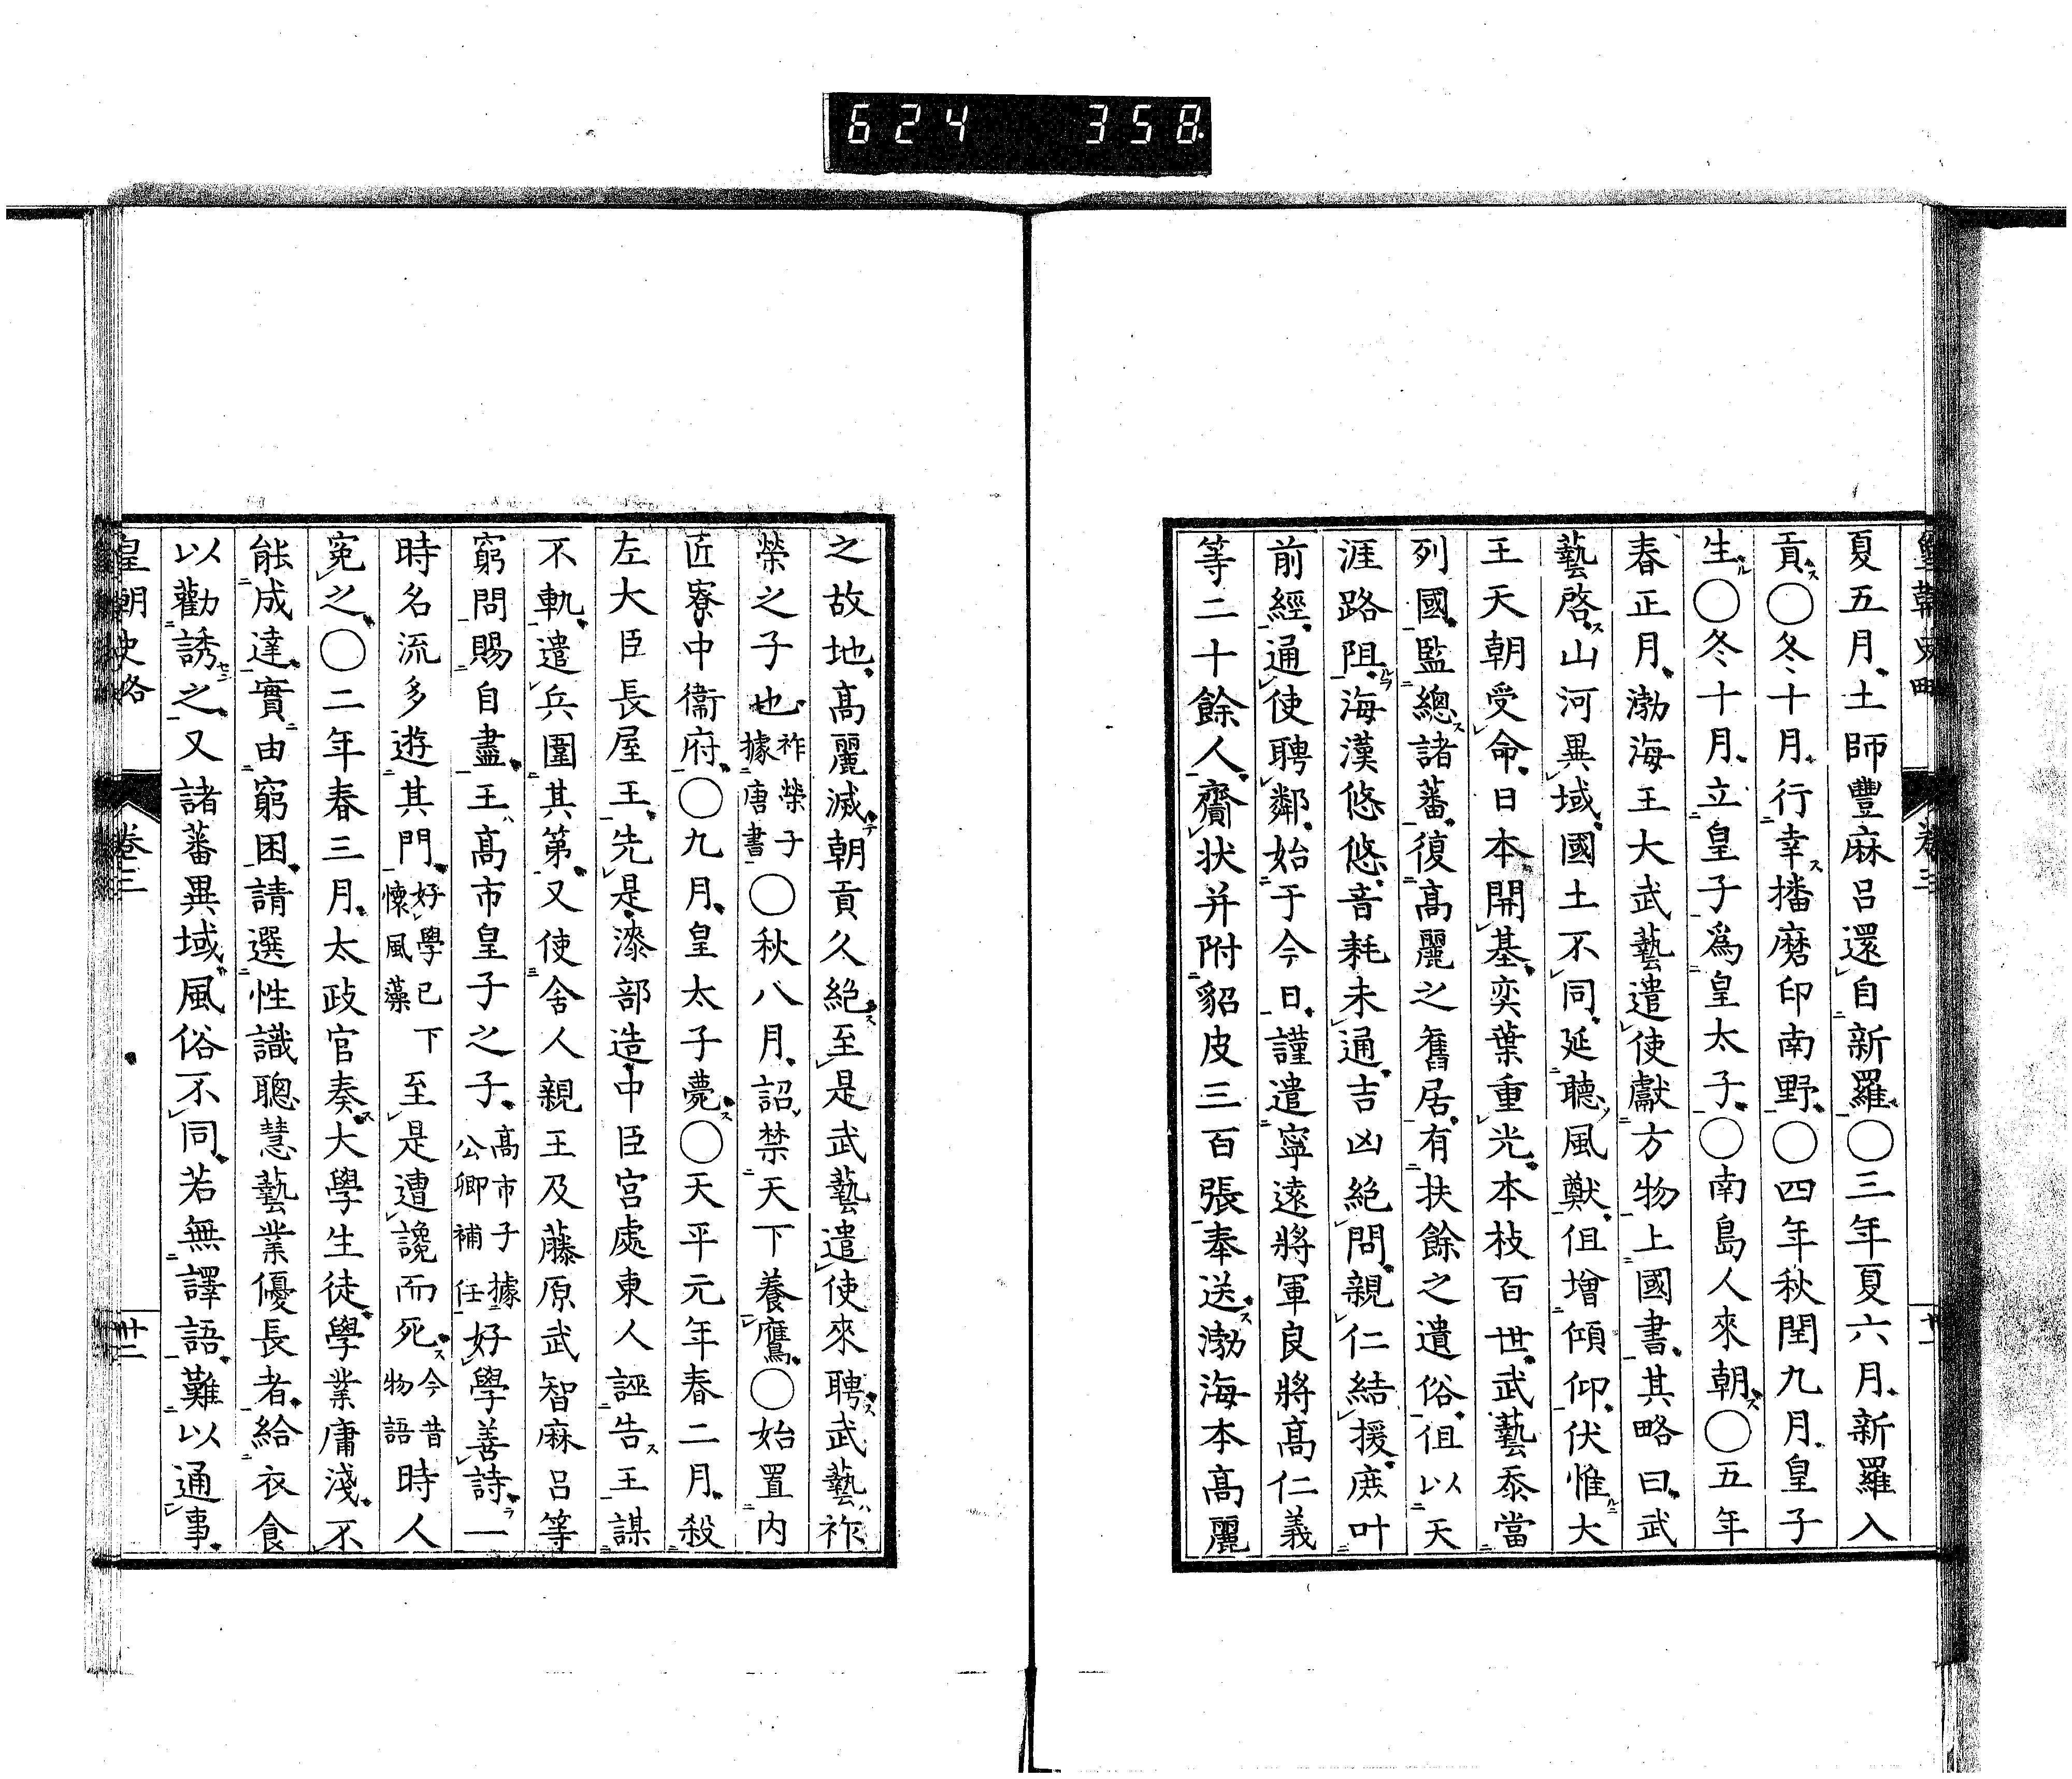 624 358
皇朝史略 卷三
夏五月土師豐麻呂還自新羅〇三年夏六月新羅入
貢〇冬十月行幸播磨印南野〇四年秋閏九月皇子
生〇冬十月立皇子爲皇太子〇南島人來朝〇五年
春正月渤海王大武藝遣使獻方物上國書其略曰武
藝啓山河異域國土不同延聽風猷伹增傾仰伏惟大
王天朝受命日本開基奕葉重光本枝百世武藝忝當
列國監總諸蕃復高麗之舊居有扶餘之遺俗伹以天
涯路阻海漢悠悠音耗未通吉凶絕問親仁結援庶叶
前經通使聘鄰始于今日謹遣寧遠將軍良將高仁義
等二十餘人齎狀并附貂皮三百張奉送渤海本高麗
之故地高麗滅朝貢久絕至是武藝遣使來聘武藝祚
榮之子也祚榮子據唐書〇秋八月詔禁天下養鷹〇始置内
匠寮中衞府〇九月皇太子薨〇天平元年春二月殺
左大臣長屋王先是漆部造中臣宮處東人誣告王謀
不軌遣兵圍其第又使舍人親王及藤原武智麻呂等
窮問賜自盡王高市皇子之子高市子據公卿補任好學善詩一
時名流多遊其門好學已下懷風藻至是遭讒而死今昔物語時人
寃之〇二年春三月太政官奏大學生徒學業庸淺不
能成達實由窮困請選性識聰慧藝業優長者給衣食
以勸誘之又諸蕃異域風俗不同若無譯語難以通事
皇朝史略 卷三 廿二